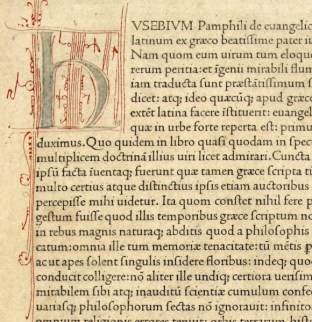 h VSEBIVM Pamphili de euangelic
latinum ex græco beatissime pater iu
Nam quom eum uirum tum eloque
rerum peritia: et īgenii mirabili flum
iam traducta sunt præstātissimum s
dicet: atq; ideo quæcūq; apud græco
extēt latina facere īstituerit: euangel
quæ in urbe forte reperta est: primu
duximus. Quo quidem in libro quasi quodam in spec
multiplicem doctrinā illius uiri licet admirari. Cuncta
ipsū facta īuentaq; fuerunt quæ tamen græce scripta tū
multo certius atque distinctius ipsis etiam auctoribus
percepisse mihi uidetur. Ita quom constet nihil fere p
gestum fuisse quod illis temporibus græce scriptum no
in rebus magnis naturaq; abditis quod a philosophis
catum: omnia ille tum memoriæ tenacitate: tū mētis p
ac ut apes solent singulis insidere floribus: indeq; quo
conducit colligere: nō aliter ille undiq; certiora uerisim
mirabilem sibi atq; inauditū scientiæ cumulum confe
uariasq; philosophorum sectas nō ignorauit: infinito
omnium religionis errores tenuit: orbis terrarum histo